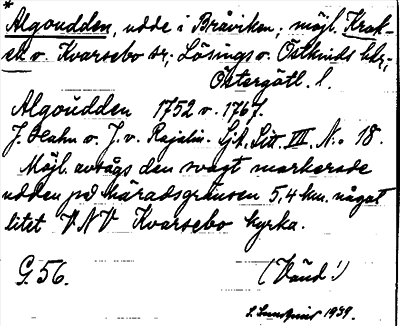 *
Algoudden, udde i Bråviken, möjl. Krok-
ek o. Kvarsebo sr; Lösings o. Östkinds hdr;
Östergötl. l.
Algoŭdden 1752 o. 1767.
J. Hahn o. J. v. Rajalin. GA, Litt. VII, N:o 18.
Möjl. avsågs den svagt markerade
udden på häradsgränsen 5,4 km. något
litet VNV Kvarsebo kyrka.
G. 56.
(Vänd!)
1939.